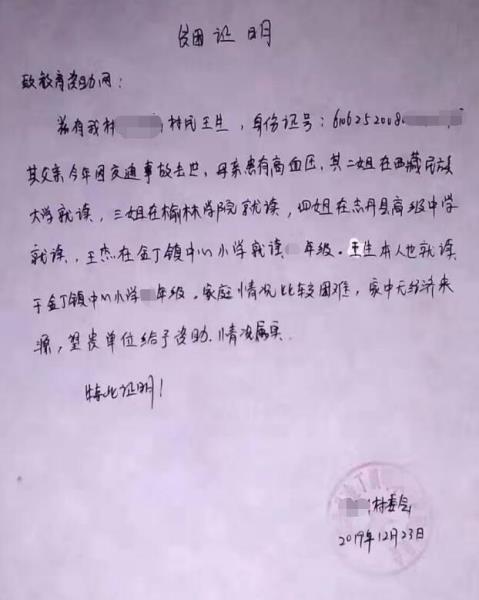 贫困证明
致教育资助网：
兹有我村 村民王生，身份证号：6106252008
其父亲今年因交通事故去世，母亲患有高血压，其二姐在西藏民族
大学就读，三姐在榆林学院就读，四姐在志丹县高级中学
就读，王杰在金丁镇中心小学就读 年级。王生本人也就读
于金丁镇中心小学 年级。家庭情况比较困难，家中无经济来
源，望贵单位给予资助。情况属实
特此证明！
村委会
2019年12月23日